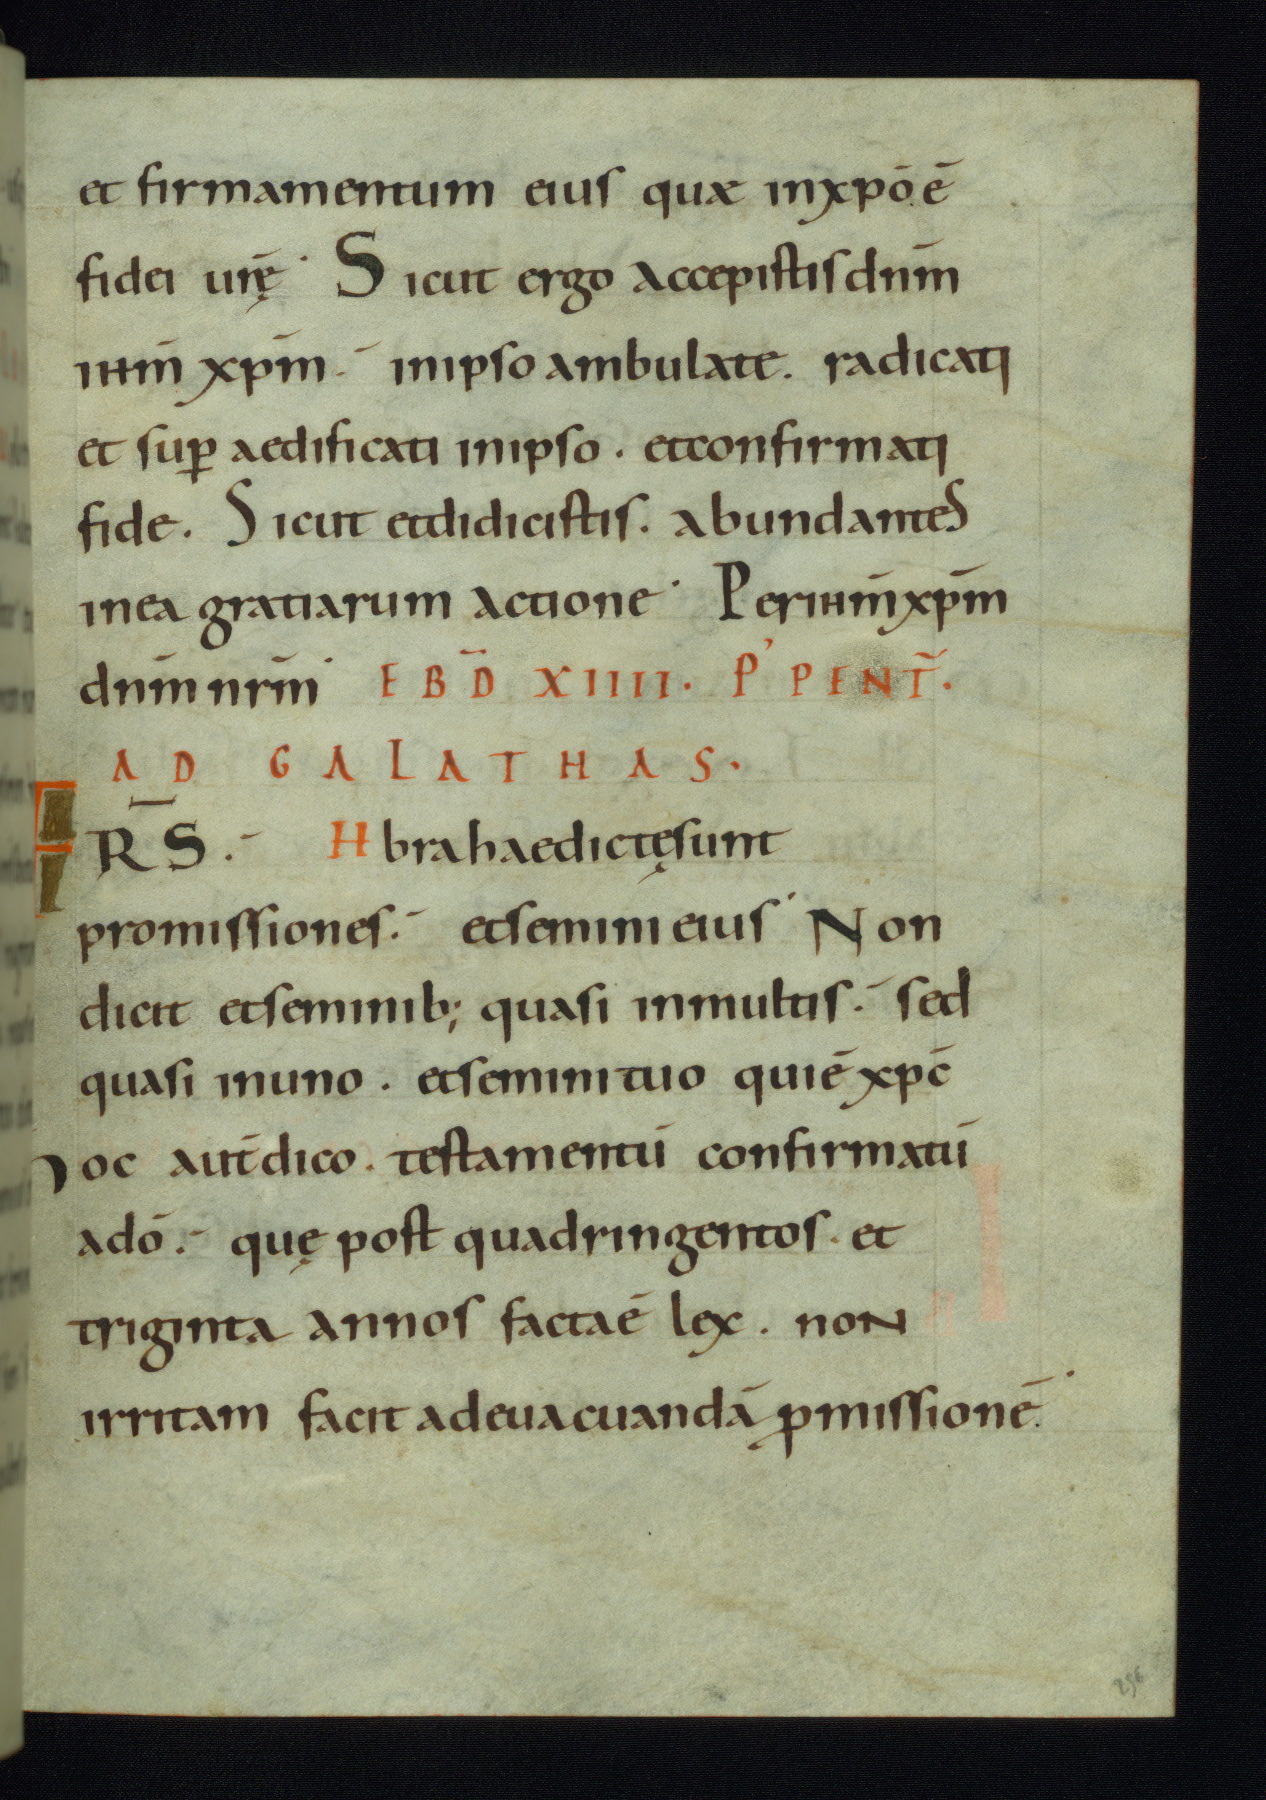 et firmamentum eius quae inxpō.ē
fidei urę̄. Sicut ergo accepistis dnm̄
ihm̄ xpm̄. inipso ambulate. radicati
et sup̄ aedificati inipso. etconfirmati
fide. Sicut etdidicistis. abundantes
inea gratiarum actione. Perihm̄xpm̄
dnm̄ nrm̄. EBD̄ XIIII. P' PENT̄.
AD GALATHAS.
FR̄S. Abrahaedictęsunt
promissiones. etsemini eius. Non
dicit etseminib; quasi inmultis. sed
quasi inuno. etseminituo quiē xpc̄
hoc aut̄dico. testamentū confirmatū
adō. quę post quadringentos. et
triginta annos factaē lex. non
irritam facit adeuacuandā ꝓmissionē.
256